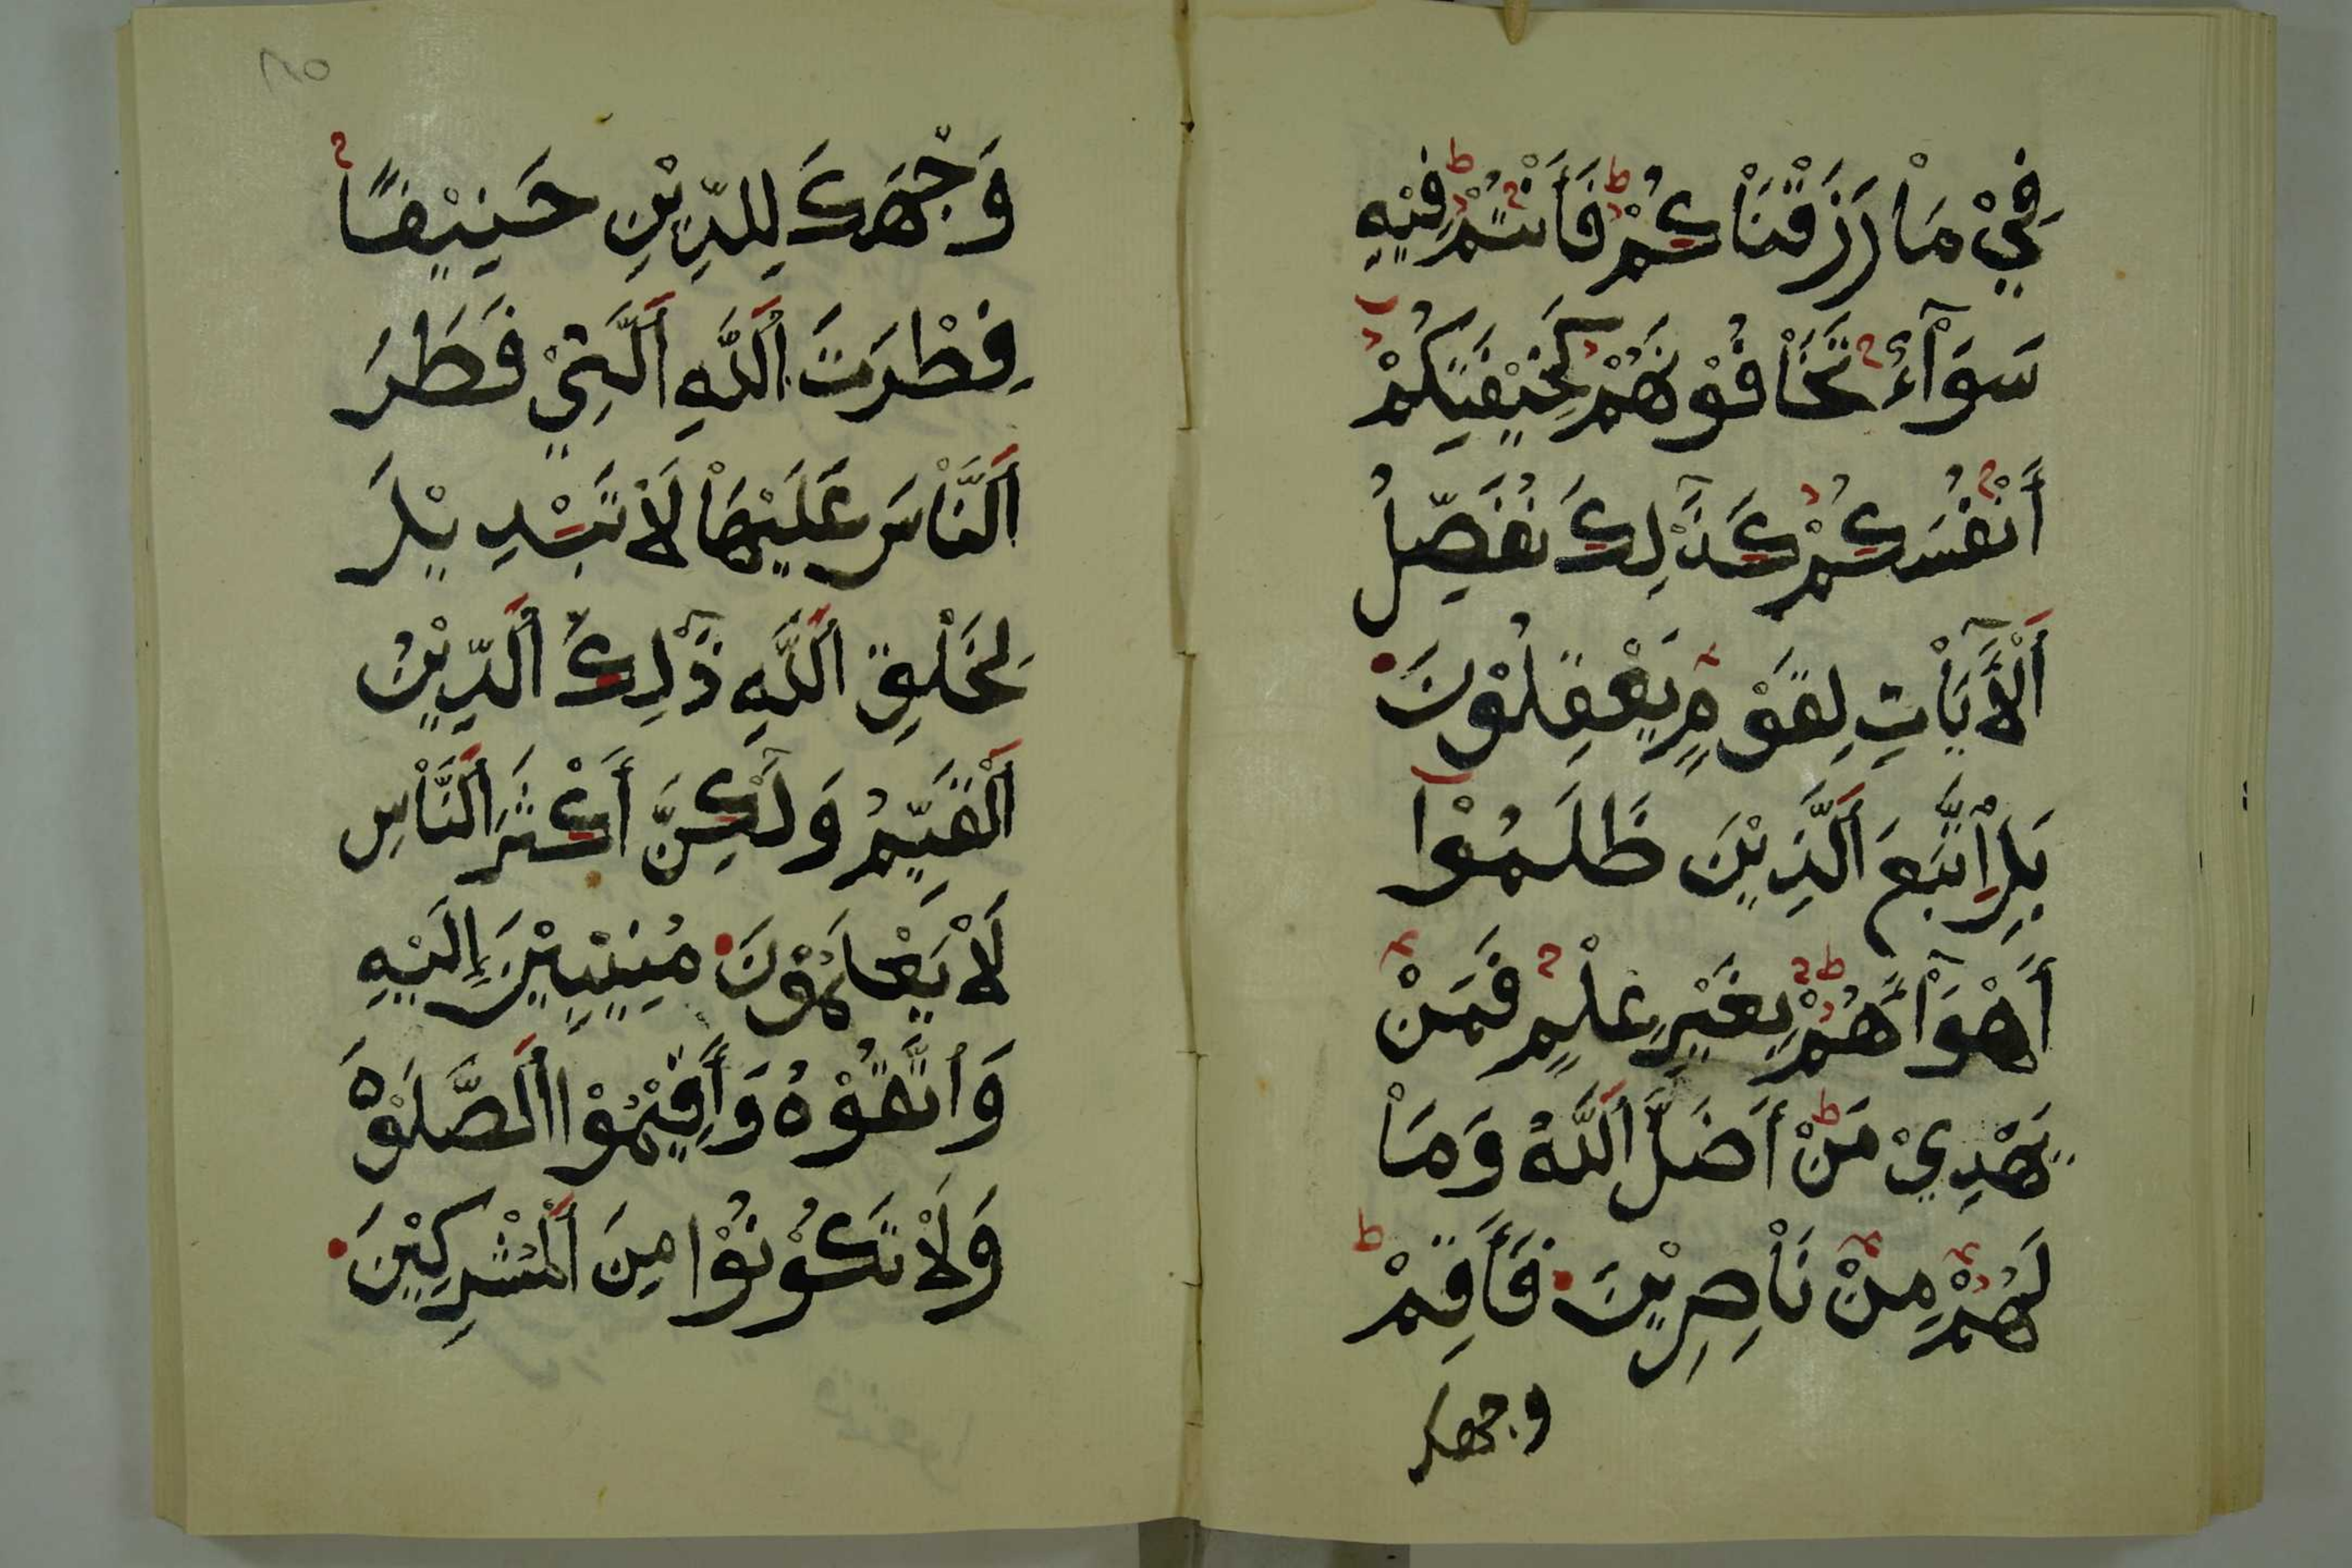 فِيْ مَاْ رَزَقْنَاْكُمْ فَأَنْتُمْ فِيْهِ
سَوَآءٌ تَخَاْفُوْنَهُمْ كَخِيْفَتِكُمْ
أَنْفُسَكُمْ كَذَٰلِكَ نُفَصِّلُ
اَلْآيَاْتِ لِقَوْمٍ يَعْقِلُوْنَ
بَلِ اِتَّبَعَ اَلَّذِيْنَ ظَلَمُوْا
أَهْوَآءَهُمْ بِغَيْرِ عِلْمٍ فَمَنْ
يَهْدِيْ مَنْ أَضَلَّ اَللَّهُ وَمَاْ
لَهُمْ مِنْ نَاْصِرِيْنَ فَأَقِمْ
وجهك
٢٥
وَجْهَكَ لِلدِّيْنِ حَنِيْفًا
فِطْرَتَ اَللَّهِ اَلَّتِيْ فَطَرَ
اَلنَّاْسَ عَلَيْهَاْ لَاْ تَبْدِيْلَ
لِخَلْقِ اَللَّهِ ذَٰلِكَ اَلدِّيْنُ
اَلْقَيِّمُ وَلَٰكِنَّ أَكْثَرَ اَلنَّاْسِ
لَاْ يَعْلَمُوْنَ مُنِيْبِيْنَ إِلَيْهِ
وَاتَّقُوْهُ وَأَقِيْمُوْا اَلصَّلَوْةَ
وَلَاْ تَكُوْنُوْا مِنَ اَلْمُشْرِكِيْنَ